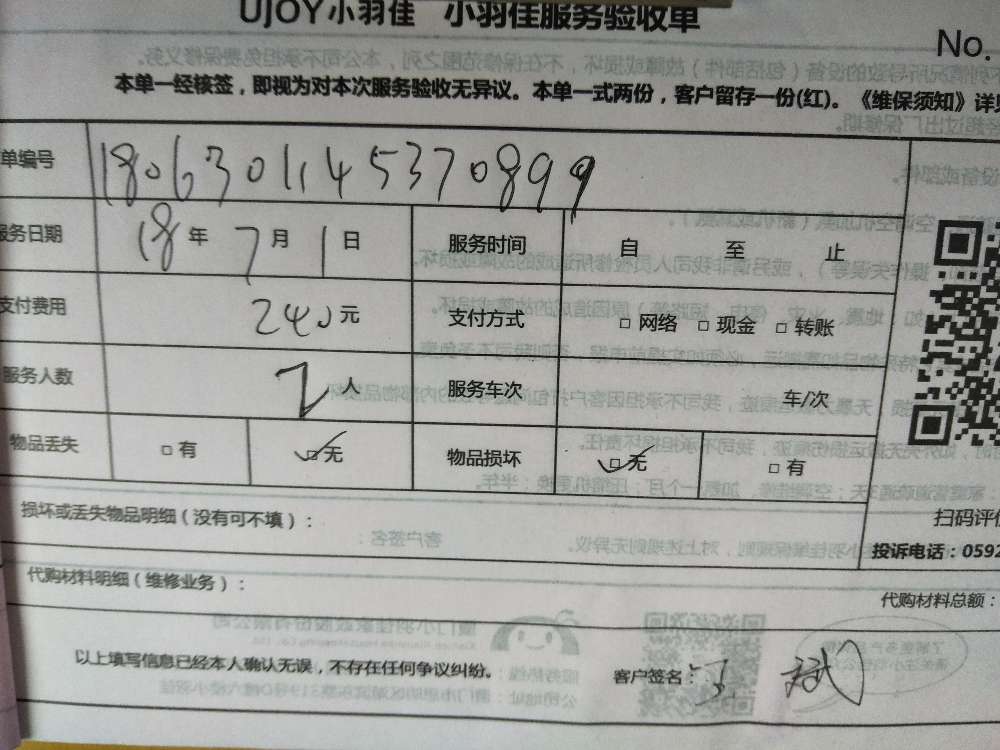 UJOY小羽佳 小羽佳服务验收单
No.
本单一经核签，即视为对本次服务验收无异议。本单一式两份，客户留存一份(红)。《维保须知》详见
单编号 1806301145370899
服务日期 18年7月1日 服务时间 自 至 止
支付费用 240元 支付方式 □网络 □现金 □转账
服务人数 2人 服务车次 车/次
物品丢失 □有 ☑无 物品损坏 ☑无 □有
损坏或丢失物品明细（没有可不填）：
扫码评价
投诉电话：0592
代购材料明细（维修业务）：
代购材料总额：
以上填写信息已经本人确认无误，不存在任何争议纠纷。 客户签名：